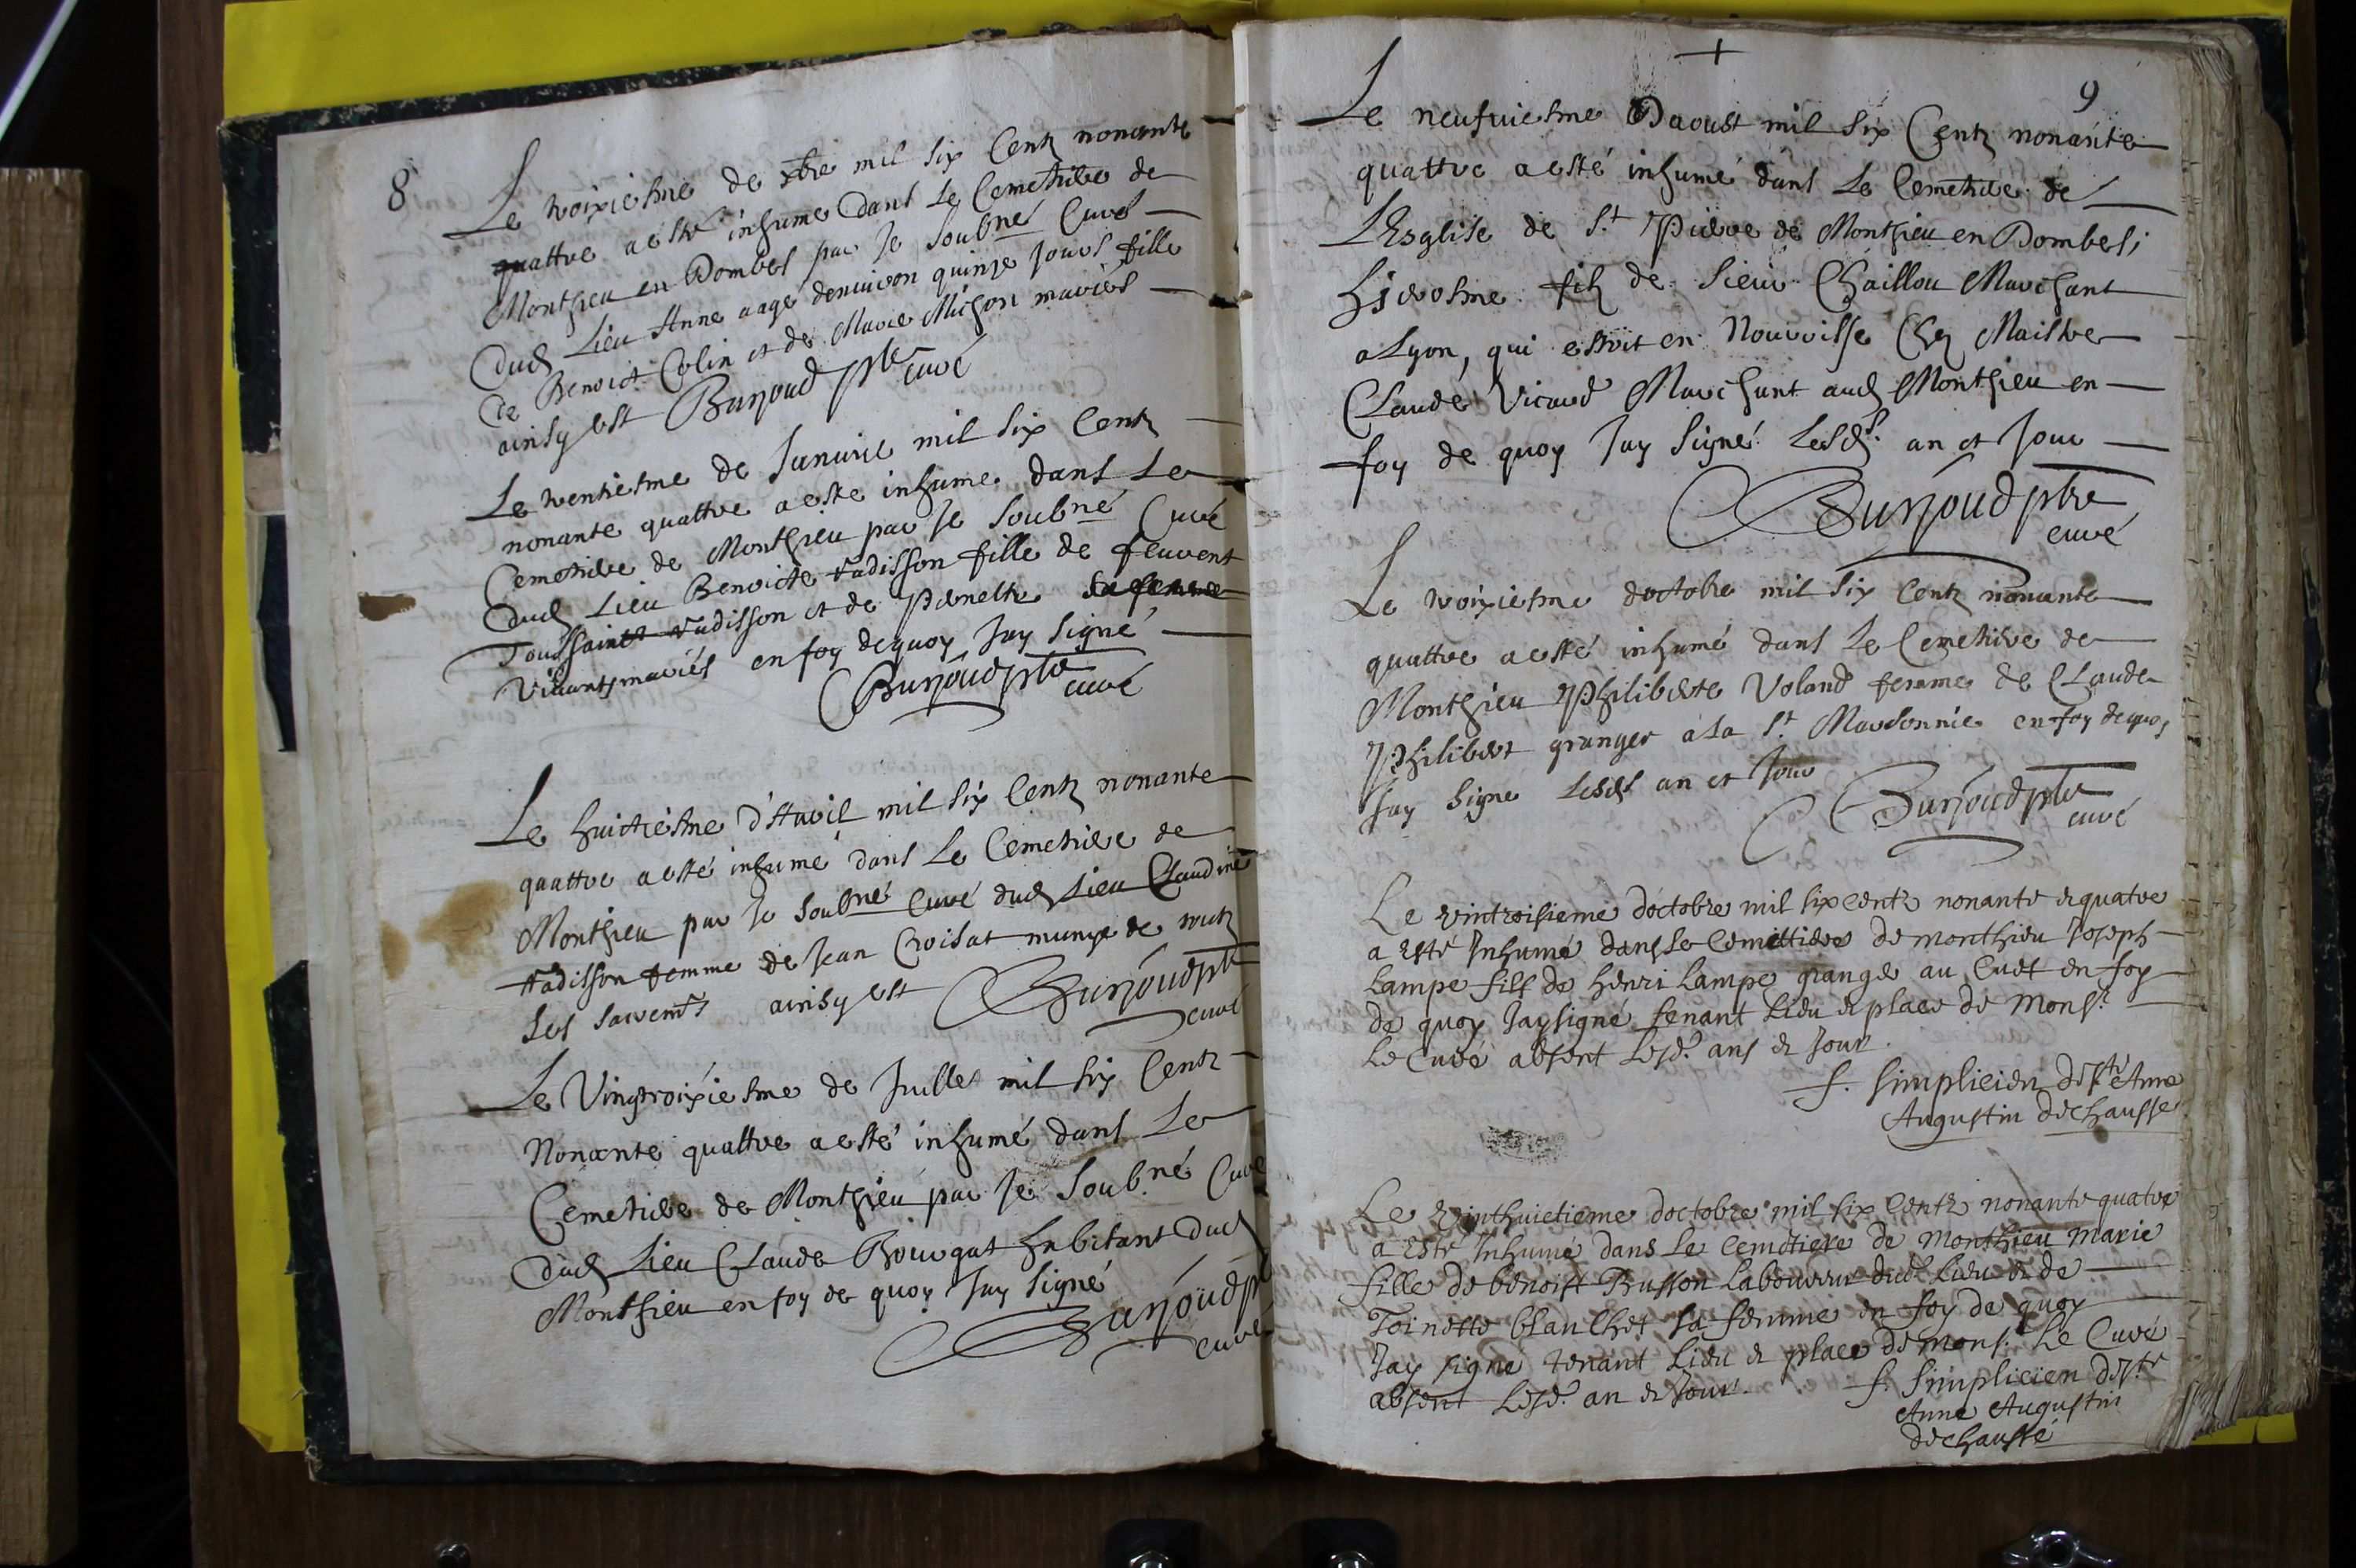 8
Le troixiesme de xbre mil six Centz nonante
quattre a esté inhumé Dans Le Cemetiere de
Monthieu en Dombes par Je Soubné Curé
Dud Lieu Anne aagé denuiron quinze Jours fille
de Benoict Colin et de Marie Michon mariés
ainsy est Burjoud ptre
curé
Le trentiesme de Januire mil six Centz
nonante quattre a este inhume dans Le
Cemetiere de Monthieu par Je Soubné Curé
Dud Lieu Benoicte Vadisson fille de feuvent
Toussainct Vadisson et de Pernette sa femme
Viuants mariés en foy de quoy Jay Signé
Burjoud ptre
curé
Le huictiesme d'Auril mil six Centz nonante
quattre a esté inhumé dans Le Cemetiere de
Monthieu par Je Soubné Curé dud Lieu Claudine
Vadisson femme de Jean Croisat munye de toutz
Les Sacremts ainsy est Burjoud ptre
curé
Le Vingtroixiesme de Juillet mil six Centz
Nonante quattre a esté inhumé dans Le
Cemetiere de Monthieu par Je Soubné Curé
dud Lieu Claude Bourgat habitant dud
Monthieu en foy de quoy Jay Signé
Burjoud p
curé
9
Le neufuiesme Daoust mil six Centz nonante
quattre a esté inhumé dans Le Cemetiere de
LEsglise de St Pierre de Monthieu en Dombes;
hierosme filz de Sieur Chaillou Marchant
a Lyon, qui estoit en Nourrisse Chez Maistre
Claude Vicard Marchant aud Monthieu en
foy de quoy Jay Signé Lesds. an et Jour
Burjoud ptre
curé
Le troixiesme doctobre mil six Centz nonante
quattre a esté inhumé dans Le Cemetiere de
Monthieu Philiberte Voland femme de Claude
Philibert granger a La St. Mardonnie en foy de quoy
Jay Signé Lesds an et Jour
Burjoud ptre
curé
Le vintroisieme doctobre mil six centz nonante et quatre
a esté Inhumé dans Le Cemettiere de monthieu Joseph
Lampe fils de henri Lampe granger au Cuet en foy
de quoy Jay signé tenant Lieu et place de Monsr
Le Curé absent Lesd. ans et Jour.
f. Simplicien de Ste Anne
Augustin dechausse
Le vinthuictieme doctobre mil six Centz nonante quatre
a esté Inhumé dans Le Cemetiere de monthieu Marie
fille de benoist Busson Laboureur dud. Lieu et de
Toinette blanchet sa femme en foy de quoy
Jay signé tenant Lieu et place de mons. Le Curé
absent Lesd. an et Jour. f. Simplicien de Ste
Anne Augustin
dechaussé